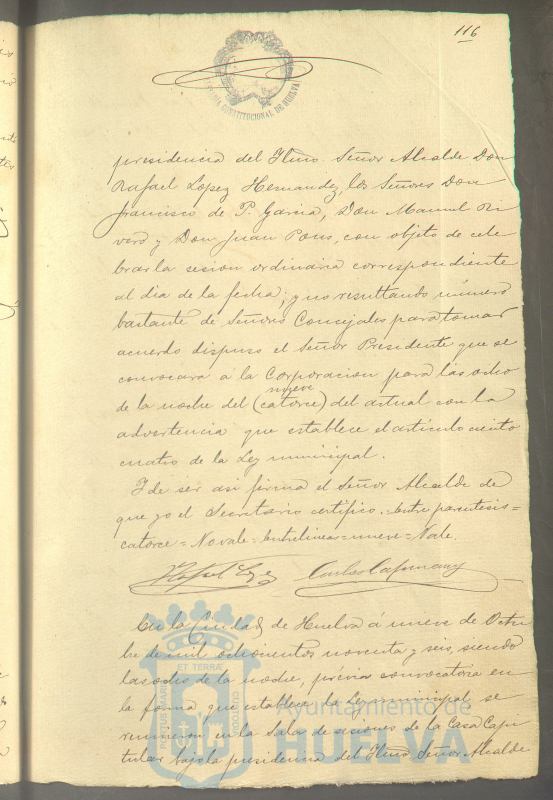 116
ALCALDIA CONSTITUCIONAL DE HUELVA
presidencia del Iltmo. Señor Alcalde Don
Rafael Lopez Hernandez, los Señores Don
Francisco de P. Garcia, Don Manuel Ri
vero y Don Juan Pons, con objeto de cele
brar la sesion ordinaria correspondiente
al dia de la fecha; y no resultando número
bastante de Señores Concejales para tomar
acuerdo dispuso el Señor Presidente que se
convocara á la Corporacion para las ocho
nueve
de la noche del (catorce) del actual con la
advertencia que establece el artículo ciento
cuatro de la Ley municipal.
Y de ser asi firma el Señor Alcalde de
que yo el Secretario certifico.=Entre parentesis=
catorce=No vale=Entrelineas=nueve=Vale.
Rafael Lopez
En la Ciudad de Huelva á nueve de Octu
bre de mil ochocientos noventa y seis, siendo
las ocho de la noche, prévia convocatoria en
la forma que establece la Ley municipal, se
reunieron en la Sala de sesiones de la Casa Capi
tular bajo la presidencia del Iltmo Señor Alcalde
PORTUS MARIS ET TERRÆ CUSTODIA
Ayuntamiento de
HUELVA